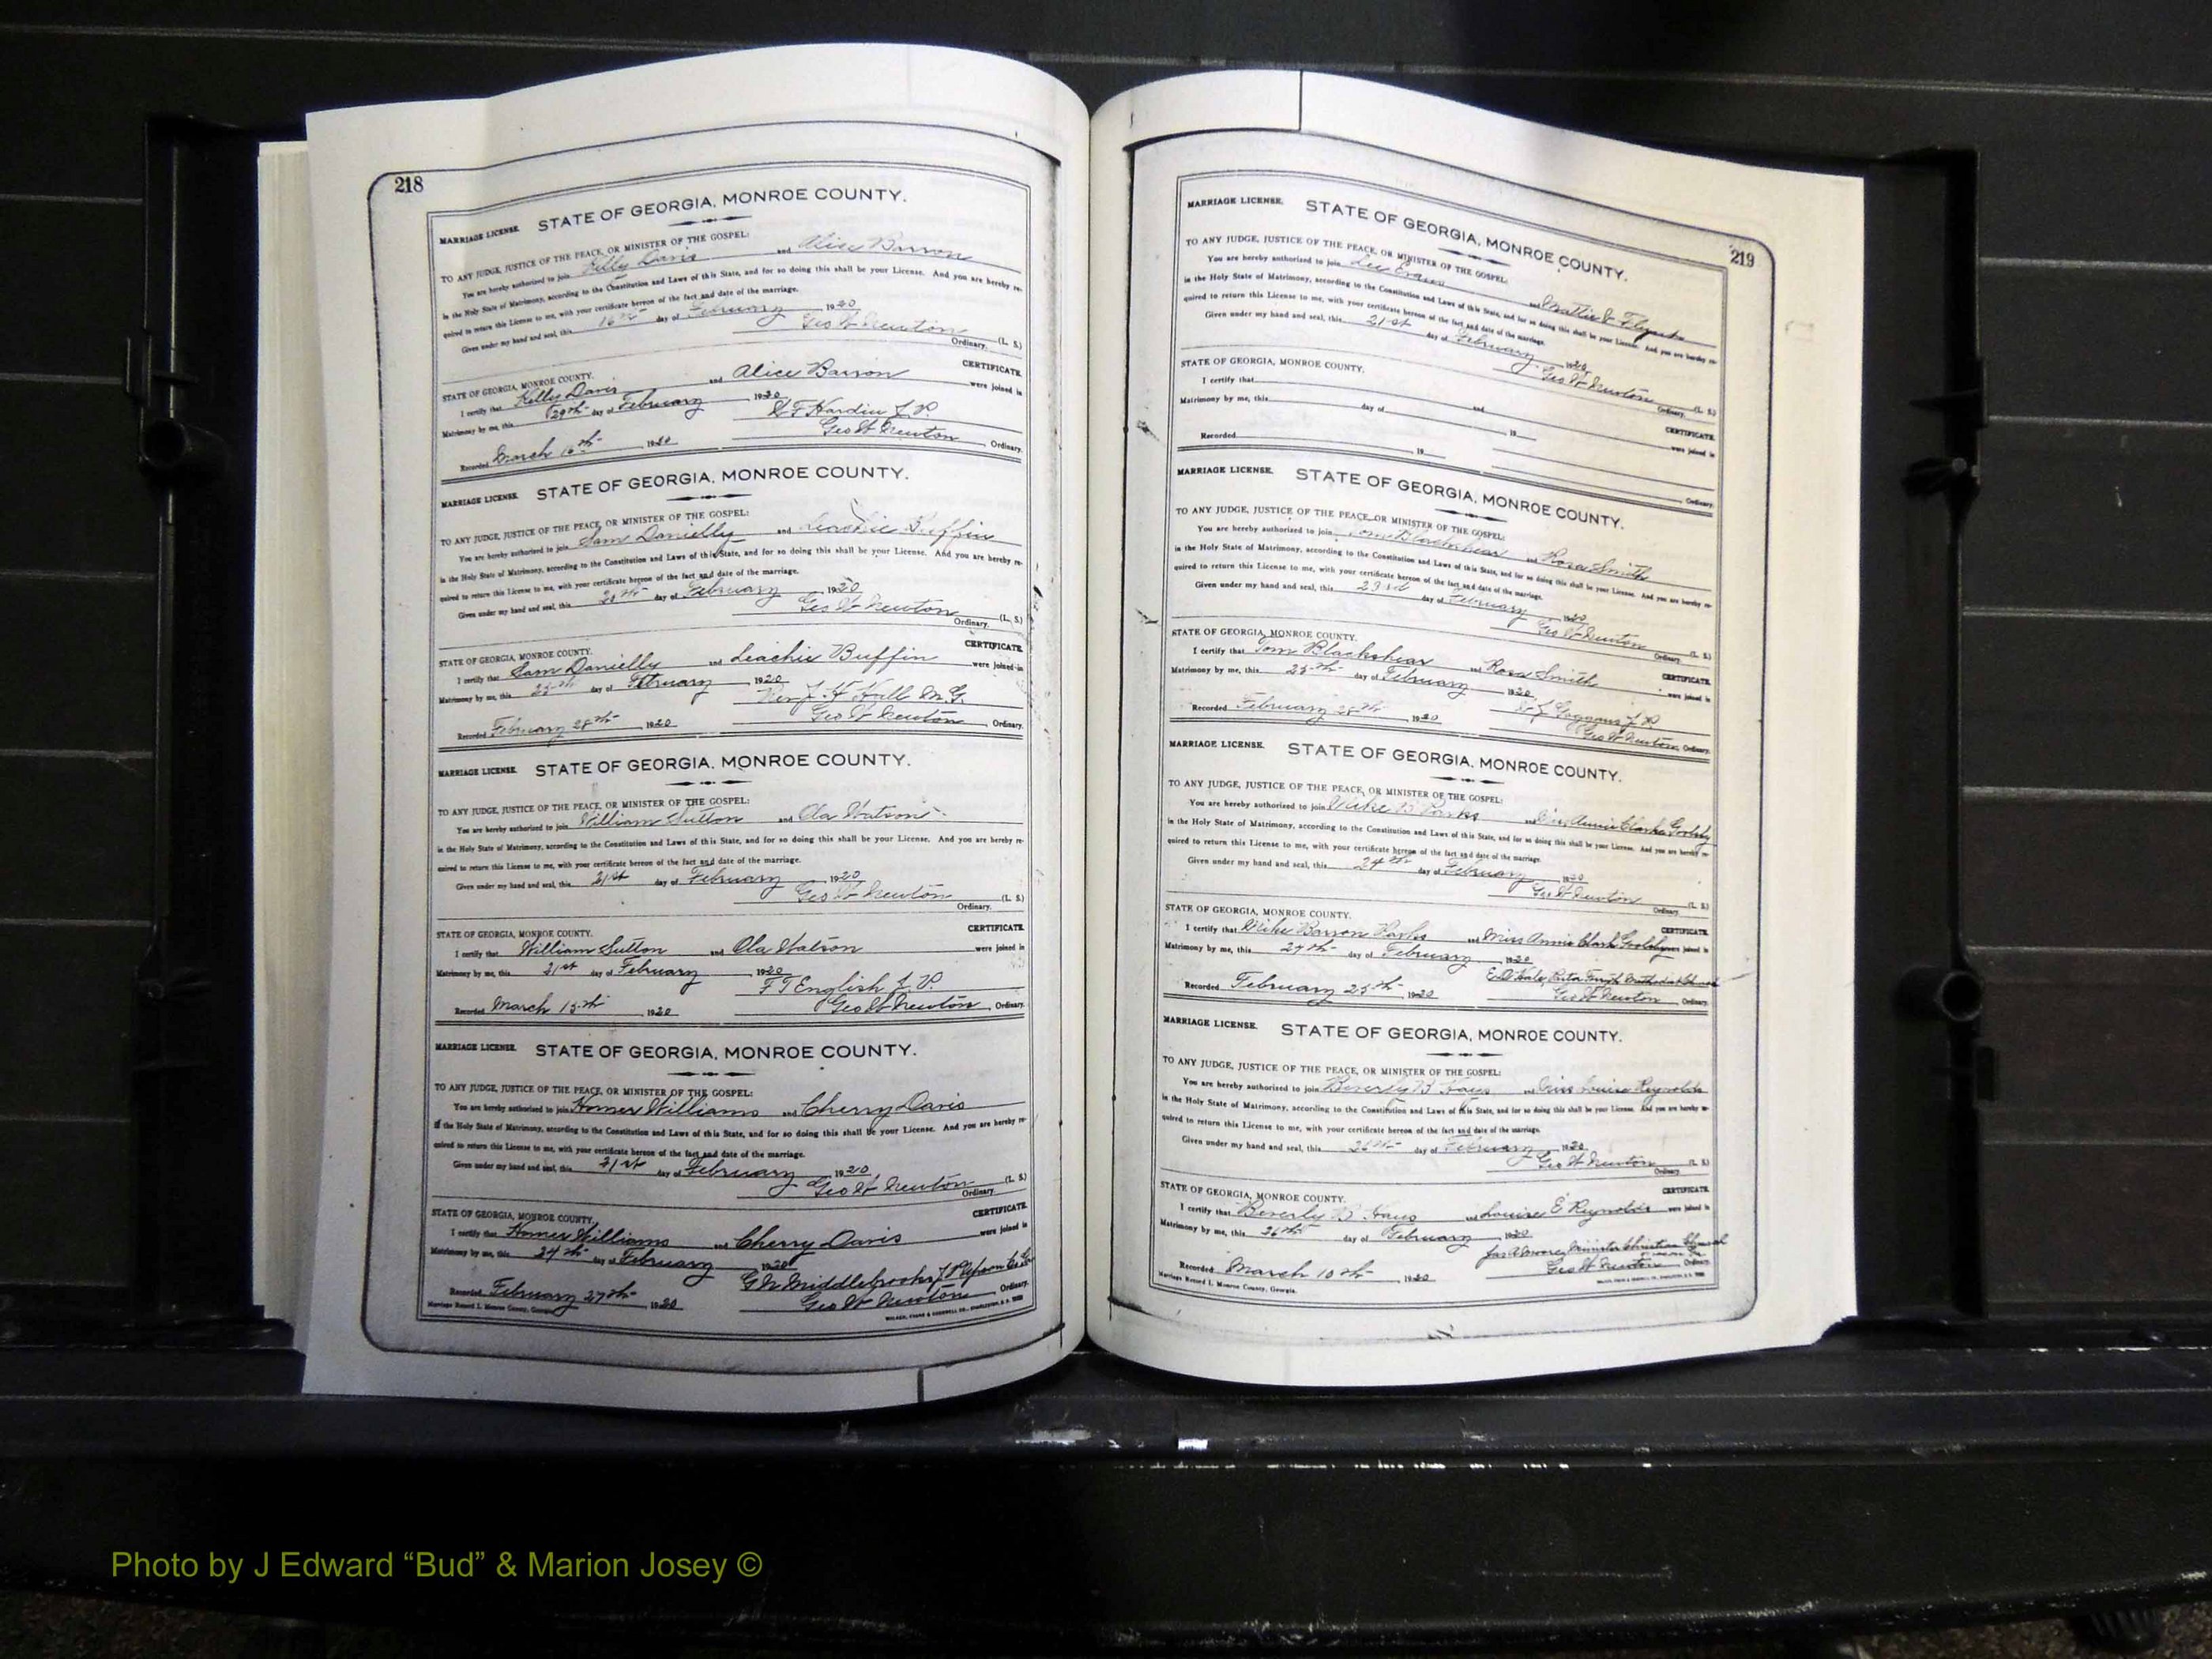 218
MARRIAGE LICENSE. STATE OF GEORGIA, MONROE COUNTY.
TO ANY JUDGE, JUSTICE OF THE PEACE, OR MINISTER OF THE GOSPEL:
You are hereby authorized to join Kelly Davis and Alice Barron
in the Holy State of Matrimony, according to the Constitution and Laws of this State, and for so doing this shall be your License. And you are hereby re-
quired to return this License to me, with your certificate hereon of the fact and date of the marriage.
Given under my hand and seal, this 16th day of February 1920
Geo W Newton (L. S.)
Ordinary.
STATE OF GEORGIA, MONROE COUNTY. CERTIFICATE.
I certify that Kelly Davis and Alice Barron were joined in
Matrimony by me, this 29th day of February 1920
Hardin J. P.
Recorded March 16th 1920 Geo W Newton Ordinary.
MARRIAGE LICENSE. STATE OF GEORGIA, MONROE COUNTY.
TO ANY JUDGE, JUSTICE OF THE PEACE, OR MINISTER OF THE GOSPEL:
You are hereby authorized to join Sam Danielly and Leachie Buffin
in the Holy State of Matrimony, according to the Constitution and Laws of this State, and for so doing this shall be your License. And you are hereby re-
quired to return this License to me, with your certificate hereon of the fact and date of the marriage.
Given under my hand and seal, this day of February 1920
Geo W Newton (L. S.)
Ordinary.
STATE OF GEORGIA, MONROE COUNTY. CERTIFICATE.
I certify that Sam Danielly and Leachie Buffin were joined in
Matrimony by me, this 25th day of February 1920
Rev J. H Hall M. G.
Recorded February 28th 1920 Geo W Newton, Ordinary.
MARRIAGE LICENSE. STATE OF GEORGIA, MONROE COUNTY.
TO ANY JUDGE, JUSTICE OF THE PEACE, OR MINISTER OF THE GOSPEL:
You are hereby authorized to join William Sutton and Ola Watson
in the Holy State of Matrimony, according to the Constitution and Laws of this State, and for so doing this shall be your License. And you are hereby re-
quired to return this License to me, with your certificate hereon of the fact and date of the marriage.
Given under my hand and seal, this 21st day of February 1920
Geo W Newton (L. S.)
Ordinary.
STATE OF GEORGIA, MONROE COUNTY. CERTIFICATE.
I certify that William Sutton and Ola Watson were joined in
Matrimony by me, this 21st day of February 1920
F T English J. P.
Recorded March 15th 1920 Geo W Newton, Ordinary.
MARRIAGE LICENSE. STATE OF GEORGIA, MONROE COUNTY.
TO ANY JUDGE, JUSTICE OF THE PEACE, OR MINISTER OF THE GOSPEL:
You are hereby authorized to join Homer Williams and Cherry Davis
in the Holy State of Matrimony, according to the Constitution and Laws of this State, and for so doing this shall be your License. And you are hereby re-
quired to return this License to me, with your certificate hereon of the fact and date of the marriage.
Given under my hand and seal, this 21st day of February 1920
Geo W Newton (L. S.)
Ordinary.
STATE OF GEORGIA, MONROE COUNTY. CERTIFICATE.
I certify that Homer Williams and Cherry Davis were joined in
Matrimony by me, this 24th day of February 1920
G N Middlebrooks J P Upson Co Ga
Recorded February 27th 1920 Geo W Newton Ordinary.
Marriage Record I. Monroe County, Georgia. WALKER, EVANS & COGSWELL CO., CHARLESTON, S. C.
219
MARRIAGE LICENSE. STATE OF GEORGIA, MONROE COUNTY.
TO ANY JUDGE, JUSTICE OF THE PEACE, OR MINISTER OF THE GOSPEL:
You are hereby authorized to join Lee Evans and Mattie
in the Holy State of Matrimony, according to the Constitution and Laws of this State, and for so doing this shall be your License. And you are hereby re-
quired to return this License to me, with your certificate hereon of the fact and date of the marriage.
Given under my hand and seal, this 21st day of February 1920
Geo W Newton (L. S.)
Ordinary.
STATE OF GEORGIA, MONROE COUNTY. CERTIFICATE.
I certify that and were joined in
Matrimony by me, this day of 19
Recorded 19 Ordinary.
MARRIAGE LICENSE. STATE OF GEORGIA, MONROE COUNTY.
TO ANY JUDGE, JUSTICE OF THE PEACE, OR MINISTER OF THE GOSPEL:
You are hereby authorized to join Tom Blackshear and Rosa Smith
in the Holy State of Matrimony, according to the Constitution and Laws of this State, and for so doing this shall be your License. And you are hereby re-
quired to return this License to me, with your certificate hereon of the fact and date of the marriage.
Given under my hand and seal, this 23rd day of February 1920
Geo W Newton (L. S.)
Ordinary.
STATE OF GEORGIA, MONROE COUNTY. CERTIFICATE.
I certify that Tom Blackshear and Rosa Smith were joined in
Matrimony by me, this 25th day of February 1920
Goggans J P
Recorded February 28th 1920 Geo W Newton, Ordinary.
MARRIAGE LICENSE. STATE OF GEORGIA, MONROE COUNTY.
TO ANY JUDGE, JUSTICE OF THE PEACE, OR MINISTER OF THE GOSPEL:
You are hereby authorized to join Mike B Parks and Miss Annie Clarke Goolsby
in the Holy State of Matrimony, according to the Constitution and Laws of this State, and for so doing this shall be your License. And you are hereby re-
quired to return this License to me, with your certificate hereon of the fact and date of the marriage.
Given under my hand and seal, this 24th day of February 1920
Geo W Newton (L. S.)
Ordinary.
STATE OF GEORGIA, MONROE COUNTY. CERTIFICATE.
I certify that Mike Barron Parks and Miss Annie Clark Goolsby were joined in
Matrimony by me, this 24th day of February 1920
Hale, Methodist Church
Recorded February 25th 1920 Geo W Newton Ordinary.
MARRIAGE LICENSE. STATE OF GEORGIA, MONROE COUNTY.
TO ANY JUDGE, JUSTICE OF THE PEACE, OR MINISTER OF THE GOSPEL:
You are hereby authorized to join Beverly B Hays and Miss Louise Reynolds
in the Holy State of Matrimony, according to the Constitution and Laws of this State, and for so doing this shall be your License. And you are hereby re-
quired to return this License to me, with your certificate hereon of the fact and date of the marriage.
Given under my hand and seal, this 26th day of February 1920
Geo W Newton (L. S.)
Ordinary.
STATE OF GEORGIA, MONROE COUNTY. CERTIFICATE.
I certify that Beverly B Hays and Louise E Reynolds were joined in
Matrimony by me, this 26th day of February 1920
Jas A Moore, Minister Christian Church
Recorded March 10th 1920 Geo W Newton Ordinary.
Marriage Record I. Monroe County, Georgia.
Photo by J Edward “Bud” & Marion Josey ©